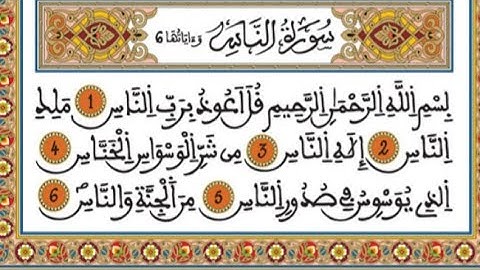 سُورَةُ النَّاسِ وَءَايَاتُهَا 6
بِسْمِ اِللَّهِ اِلرَّحْمَٰنِ اِلرَّحِيمِ قُلَ اَعُوذُ بِرَبِّ اِلنَّاسِ 1 مَلِكِ
اِلنَّاسِ 2 إِلَٰهِ اِلنَّاسِ 3 مِن شَرِّ اِلْوَسْوَاسِ اِلْخَنَّاسِ 4
اِلذِے يُوَسْوِسُ فِے صُدُورِ اِلنَّاسِ 5 مِنَ اَلْجِنَّةِ وَالنَّاسِ 6